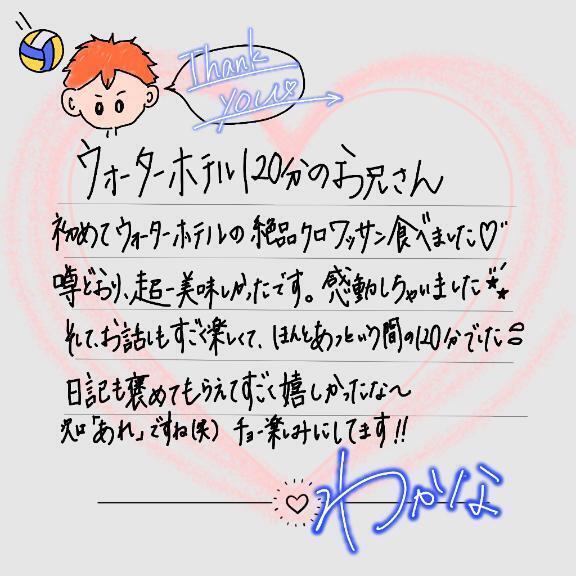 Thank
you♡
ウォーターホテル120分のお兄さん
初めてウォーターホテルの絶品クロワッサン食べました♡
噂どおり、超一美味しかったです。感動しちゃいました
そして、お話しもすごく楽しくて、ほんとあっという間の120分でした
日記も褒めてもらえてすごく嬉しかったな〜
次は「あれ」ですね(笑) チョー楽しみにしてます!!
わかな